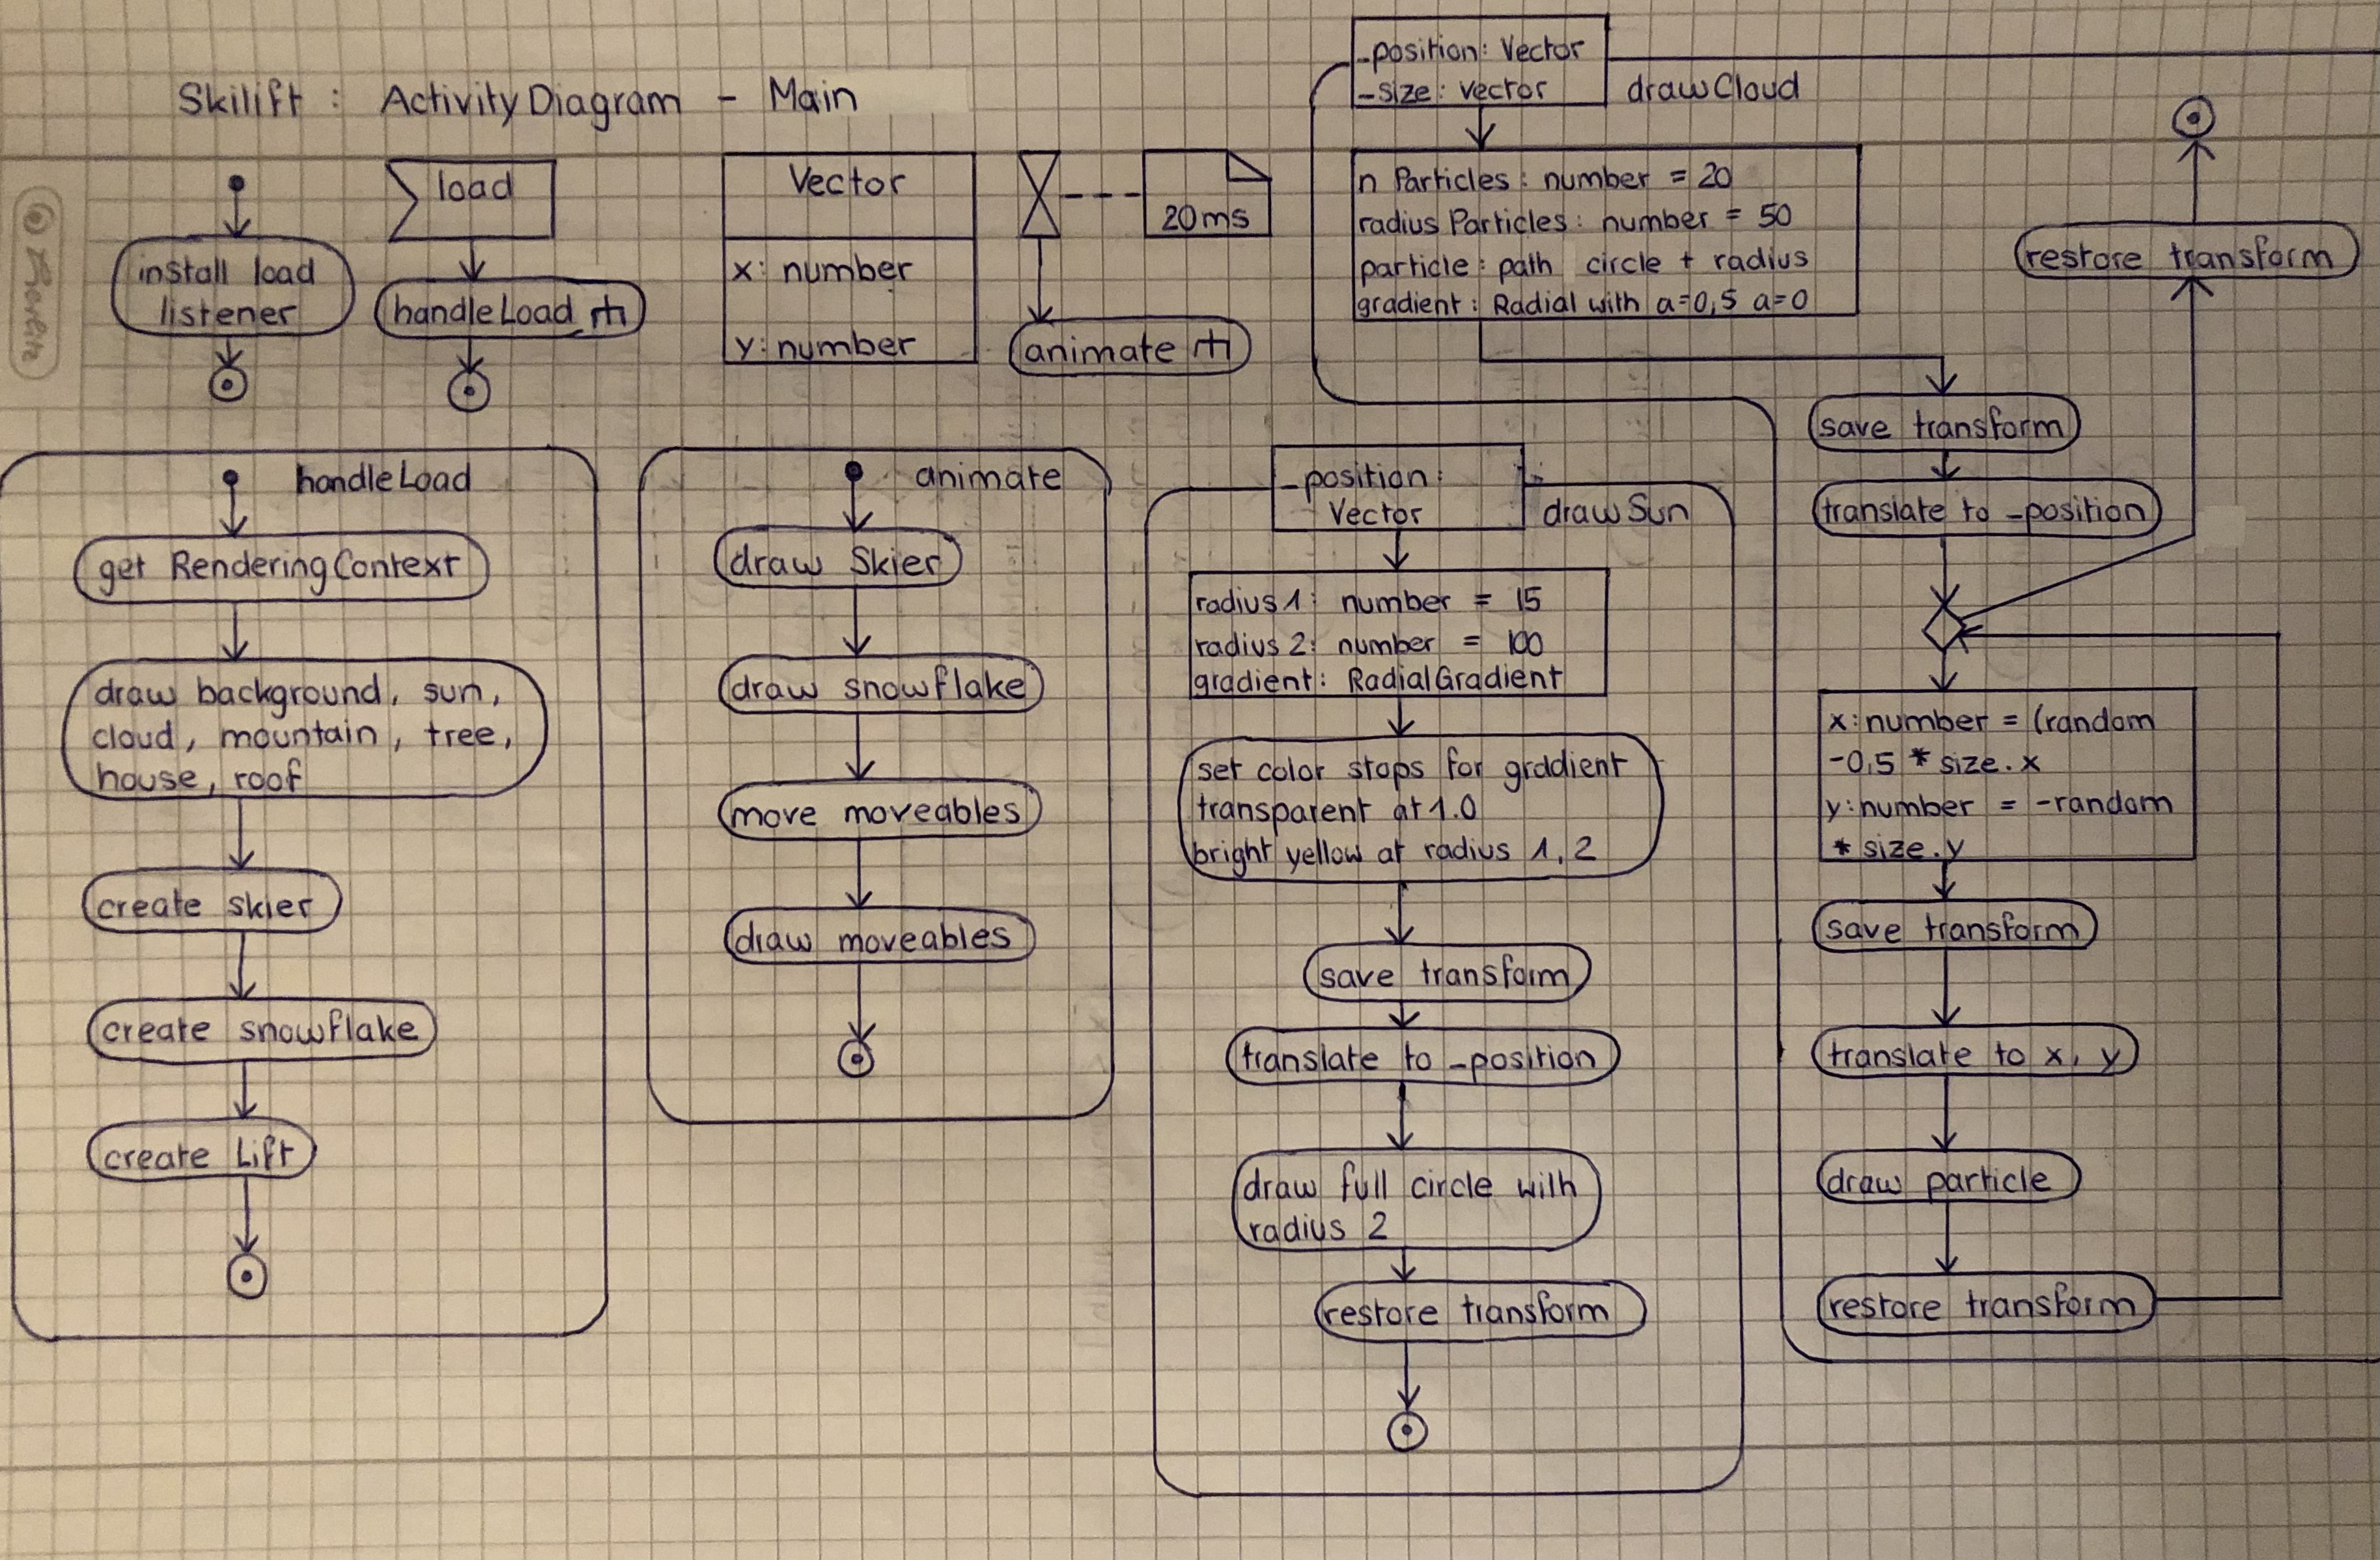 Skilift : Activity Diagram - Main
install load
listener
load
handleLoad
Vector
x: number
y: number
20ms
animate
handleLoad
get RenderingContext
draw background, sun,
cloud, mountain, tree,
house, roof
create skier
create snowflake
create Lift
animate
draw Skier
draw snowflake
move moveables
draw moveables
_position:
Vector
drawSun
radius 1: number = 15
radius 2: number = 100
gradient: RadialGradient
set color stops for graddient
transparent at 1.0
bright yellow at radius 1, 2
save transform
translate to _position
draw full circle with
radius 2
restore transform
_position: Vector
-size: vector
drawCloud
n Particles: number = 20
radius Particles: number = 50
particle: path circle + radius
gradient: Radial with a=0,5 a=0
save transform
translate to _position
x: number = (random
-0,5 * size.x
y: number = -random
* size.y
save transform
translate to x, y
draw particle
restore transform
restore transform